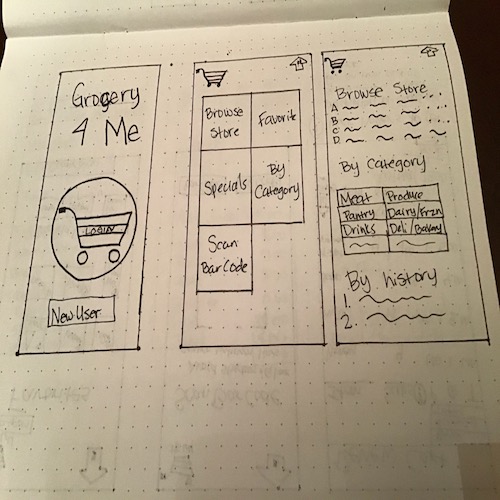 Grocery
4 Me
LOGIN
New User
Browse
Store
Favorite
Specials
By
Category
Scan
BarCode
Browse Store
A
B
C
D
By Category
Meat Produce
Pantry Dairy/Frzn
Drinks Deli/Bakery
By history
1.
2.
Favorites
Scan BarCode